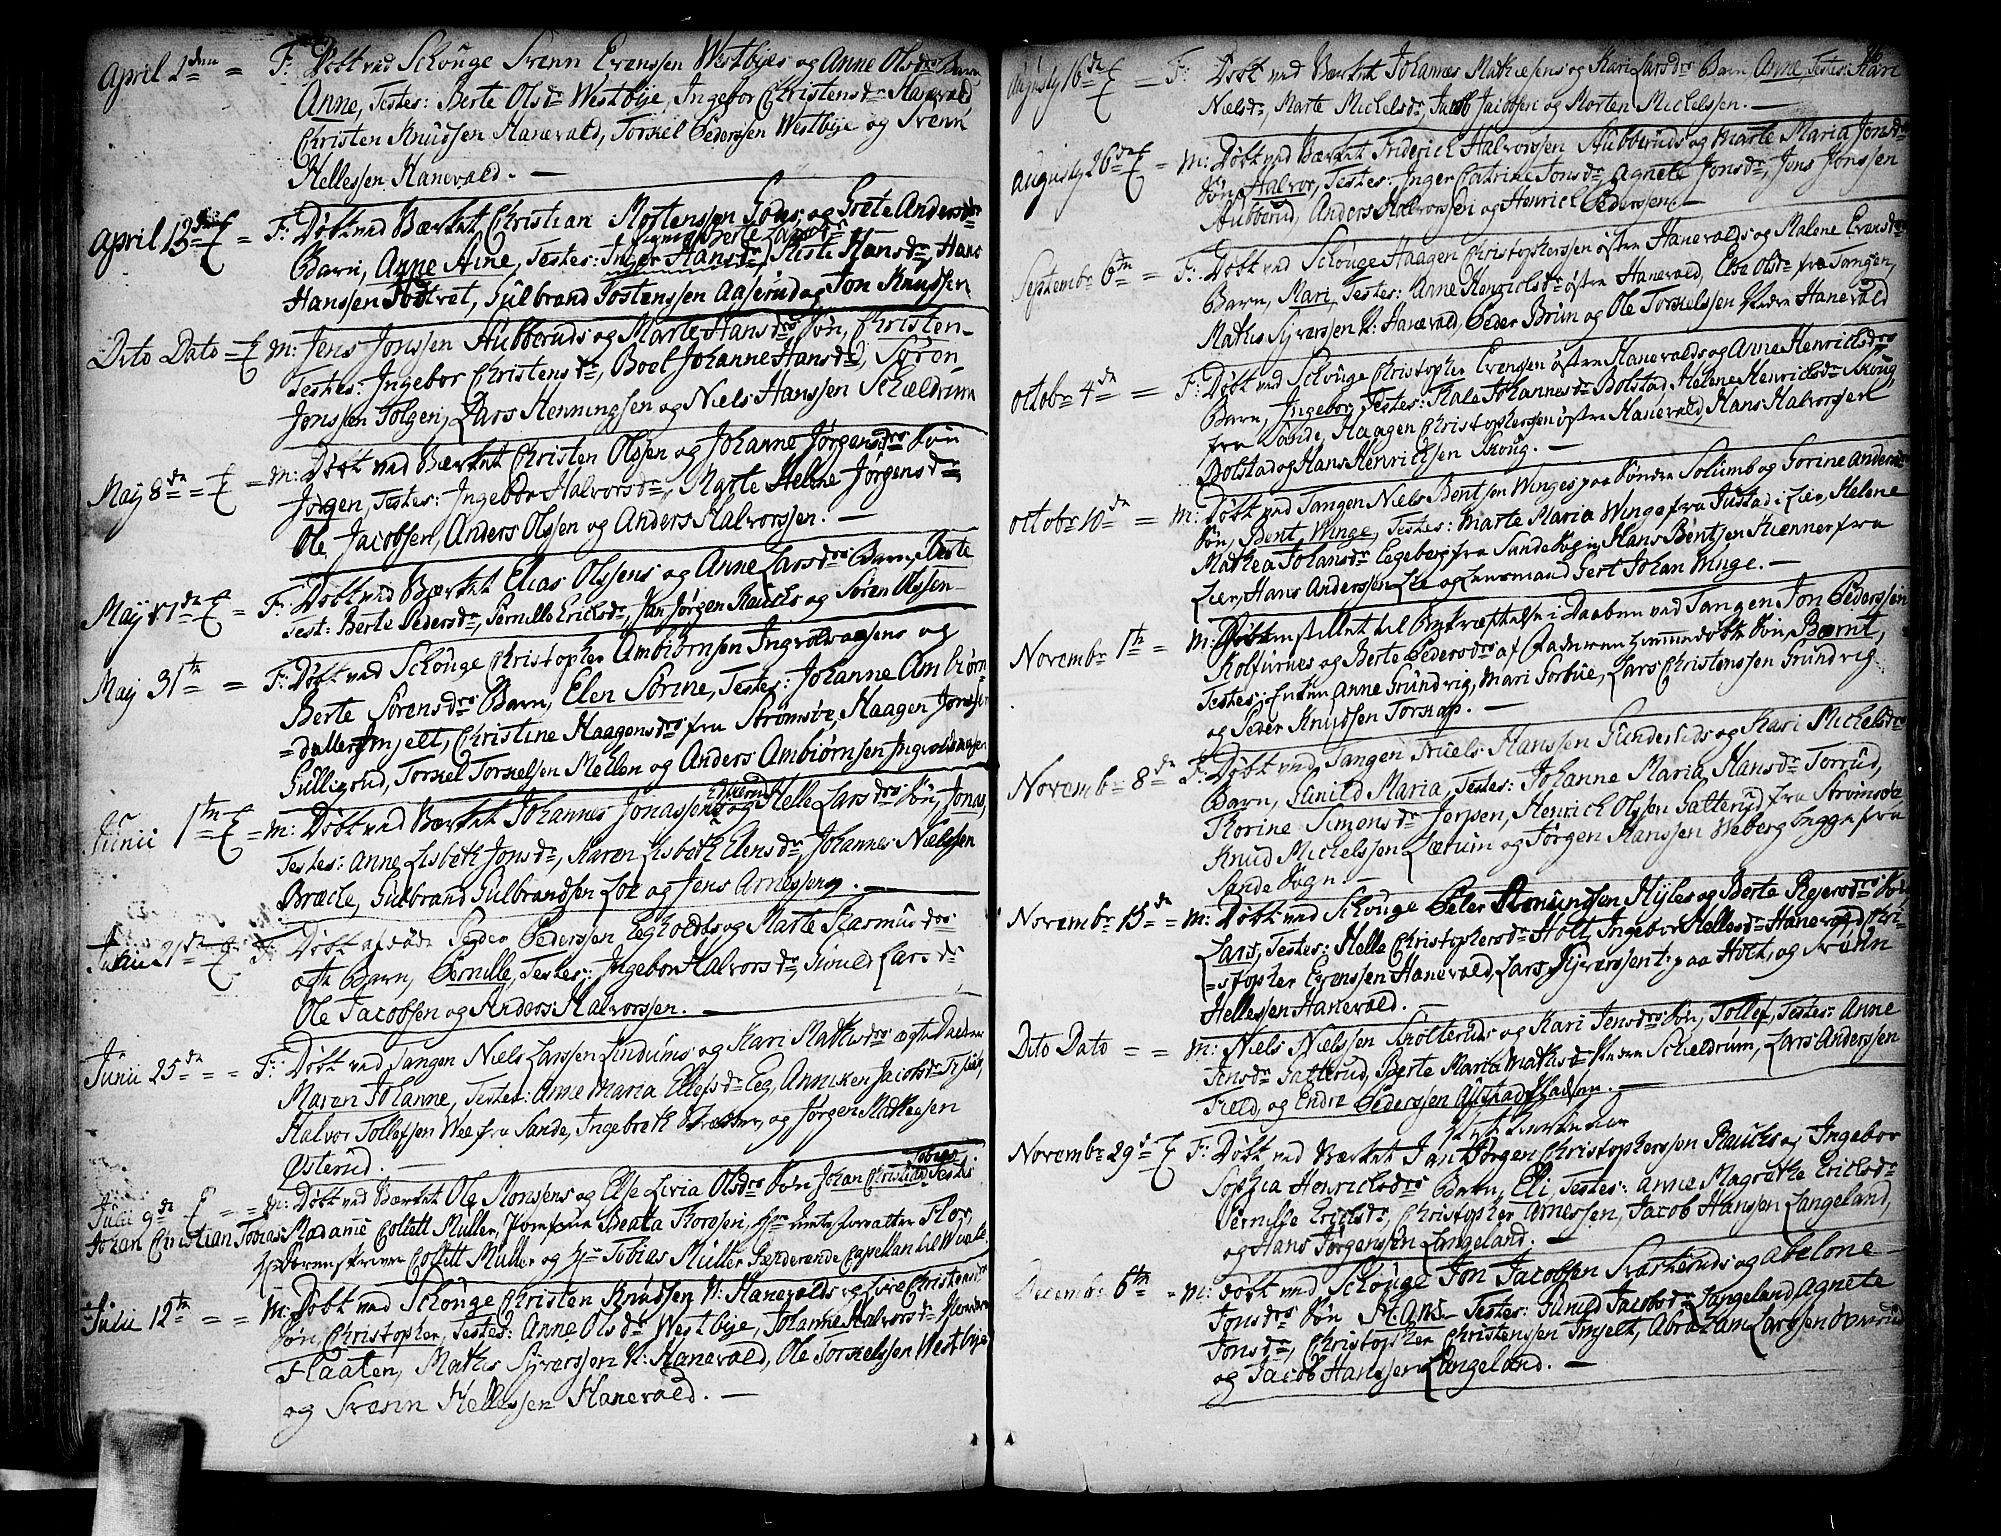 April 2den = F: Døbt ved Schouge Svenn Evenssen Westbyes og Anne Olsdrs Barn
Anne, Testes: Berte Olsdr Westbye, Ingebor Christensdr Hanevald
Christen Knudssen Hanevald, Torkel Pederssen Westbye og Svenn
Hellessen Hanevald. —
April 13de E = F: Døbt ved Værket Christian Mortenssen og Grete Andersdrs
Barn, Anne Aine, Testes: Inger Hansdr, Kiste Hansdr, Hans
Hanssen, Gulbrand Tostenssen Aaserud og Jon Knudssen
Dito Dato = E M: Jens Jonssen Hubberuds og Marte Hansdrs Søn, Christen
Testes: Ingebor Christensdr, Boel Johanne Hansdr, Søren
Jonssen Solgen, Lars Henningssen og Niels Hanssen Schældrum
May 8de = E = M: Døbt ved Værket Christen Olssen og Johanne Jørgensdrs Søn
Jørgen, Testes: Ingebor Halvorsdr, Marte Helene Jørgensdr,
Ole Jacobsen, Anders Olssen og Anders Halvorssen. —
May 17de E = F: Døbt ved Værket Elias Olssens og Anne Larsdrs Barn, Berte
Test: Berte Pedersdr, Pernille Ericksdr, Jan Jørgen Rauchs og Søren Olssen
May 31te = F: Døbt ved Schouge Christopher Ambiørnsen Ingvoldsaasens og
Berte Sørensdrs Barn, Elen Sørine, Testes: Johanne Ambiørn
=datter Imjelt, Christine Haagensdrs fra Strømsøe, Haagen Jonssen
Gulliqsrud, Torkel Torkelsen Mellen og Anders Ambiørnsen Ingvoldsaasen
Junii 1te E = M: Døbt ved Værket Johannes Jonassens og Helle Larsdrs Søn, Jonas,
Testes: Anne Lisbeth Jonsdr, Karen Lisbeth Elensdr, Johannes Nielssen
Bræcke, Gulbrand Gulbrandsen Loe og Jens Arnessen. —
Junii 21de E F: Døbt afdøde Peder Pederssen Egholdts og Marte Rasmusdrs
ægte Barn, Pernille, Testes: Ingebor Halvorsdr, Gunild Larsdr
Ole Jacobsen og Anders Halvorssen. —
Junii 25de = F: Døbt ved Tangen Niels Larssen Lindums og Kari Mathisdrs ægte Datter
Maren Johanne, Testes: Anne Maria Ellefsdr Eeg, Anniken Jacobsdr
Halvor Tollefsen Wee fra Sande, Ingebreth og Jørgen Matheesen
Østerud. —
Julii 9de E = M: Døbt ved Værket Ole Monsens og Else Livia Olsdrs Søn Johan Christian Tobias, Testes
Johan Christian Tobias Madame Collett Müller, Jomfrue Beata Thoresen, Hr
Sorenskriver Collett Müller og Hr Tobias Müller Værderende Capellan til
Julii 12te = = M: Døbt ved Schouge Christen Knudssen N: Hanevalds og Live Christensdrs
Søn, Christopher, Testes: Anne Olsdr Westbye, Johanne Halvorsdr
Flaaten, Mathis Syverssen N: Hanevald, Ole Torkelssen Westbye
og Svenn Hellessen Hanevald. —
Augusty 16de E = F: Døbt ved Værket Johannes Matheesens og Kari Larsdrs Barn, Anne, Testes: Kari
Nielsdr, Marte Michelsdr, Jacob Jacobssen og Morten Michelssen. —
Augusty 26de E = M: Døbt ved Værket Friderich Halvorssen Hubberuds og Marte Maria Jonsdrs
Søn Halvor, Testes: Inger Catrine Jonsdr, Agnete Jonsdr, Jens Jonssen
Hubberud, Anders Halvorssen og Henrich Pederssen. —
Septembr 6te = F: Døbt ved Schouge Haagen Christopherssen østre Hanevalds og Malene Evensdrs
Barn, Mari, Testes: Anne Henrichsdr østre Hanevald, Else Olsdr fra Tangen,
Mathis Syverssen N: Hanevald, Peder Bruun og Ole Torkelssen Nedre Hanevald
Octobr 4de = F: Døbt ved Schouge Christopher Evenssen østre Hanevalds og Anne Henrichsdrs
Barn, Ingebor, Testes: Kale Johannesdr Bolstad, Helene Henrichsdr Skoug,
fra Sande, Haagen Christopherssen østre Hanevald, Hans Halvorssen
Bolstad og Hans Henrichsen Skoug. —
Octobr 10de = M: Døbt ved Tangen Niels Bentsen Winges paa Søndre Solumb og Gorine Andersdrs
Søn, Bent Winge, Testes: Marte Maria Winge fra Justad i Lier, Helene
Mathea Johansdr Egeberg fra Sande Sogn, Hans Bentsen Kiænner fra
Lier, Hans Anderssen Lie og Lensmand Gert Johan Winge. —
Novembr 1te = M: fremstillet til Bekræftelse i Daaben ved Tangen Jon Pederssen
Holturnes og Berte Pedersdrs af Faderen hiemmedøbte Søn Bernt,
Testes: Enken Anne Grundvig, Mari Sorbye, Lars Christenssen Grundvig
og Peder Knudssen Torskap. —
Novembr 8de F: Døbt ved Tangen Truels Hanssen Gunderlids og Kari Michelsdrs
Barn, Gunild Maria, Testes: Johanne Maria Hansdr Torrud,
Thorine Simonsdr Jerpen, Henrich Olssen Satterud fra Strømsøe
Knud Michelssen Lærum og Jørgen Hanssen Weberg begge fra
Sande Sogn. —
Novembr 15de = M: Døbt ved Schouge Peter Amundssen Hyles og Berte Rejersdrs Søn
Lars, Testes: Helle Christophersdr Holt, Ingebor Hellesdr Hanevald Chri-
=stopher Evenssen Hanevald, Lars Syverssen tj: paa Holt, og Svenn
Hellessen Hanevald. —
Dito Dato = = M: Niels Nielssen Skotteruds og Kari Jensdrs Søn, Tollef, Testes: Anne
Jensdr Satterud, Berte Maria Mathisdr Nedre Schieldrum, Lars Anderssen
Field, og Endre Pederssen Austad. —
Novembr 29de E F: Døbt ved Værket Jan Jørgen Christopherssen Rauchs og Ingebor
Sophia Henrichsdrs Barn, Eli, Testes: Anne Magrethe Erichsdr
Pernille Erichsdr, Christopher Arnessen, Jacob Hanssen Langeland,
og Hans Jørgenssen Langeland. —
Decembr 6te = M: Døbt ved Schouge Jon Jacobssen Svarteruds og Abelone
Jonsdrs Søn Hans Testes: Gunild Jacobsdr Langeland, Agnete
Jonsdr, Christopher Christenssen Imjelt, Abraham Larssen
og Jacob Hanssen Langeland. —